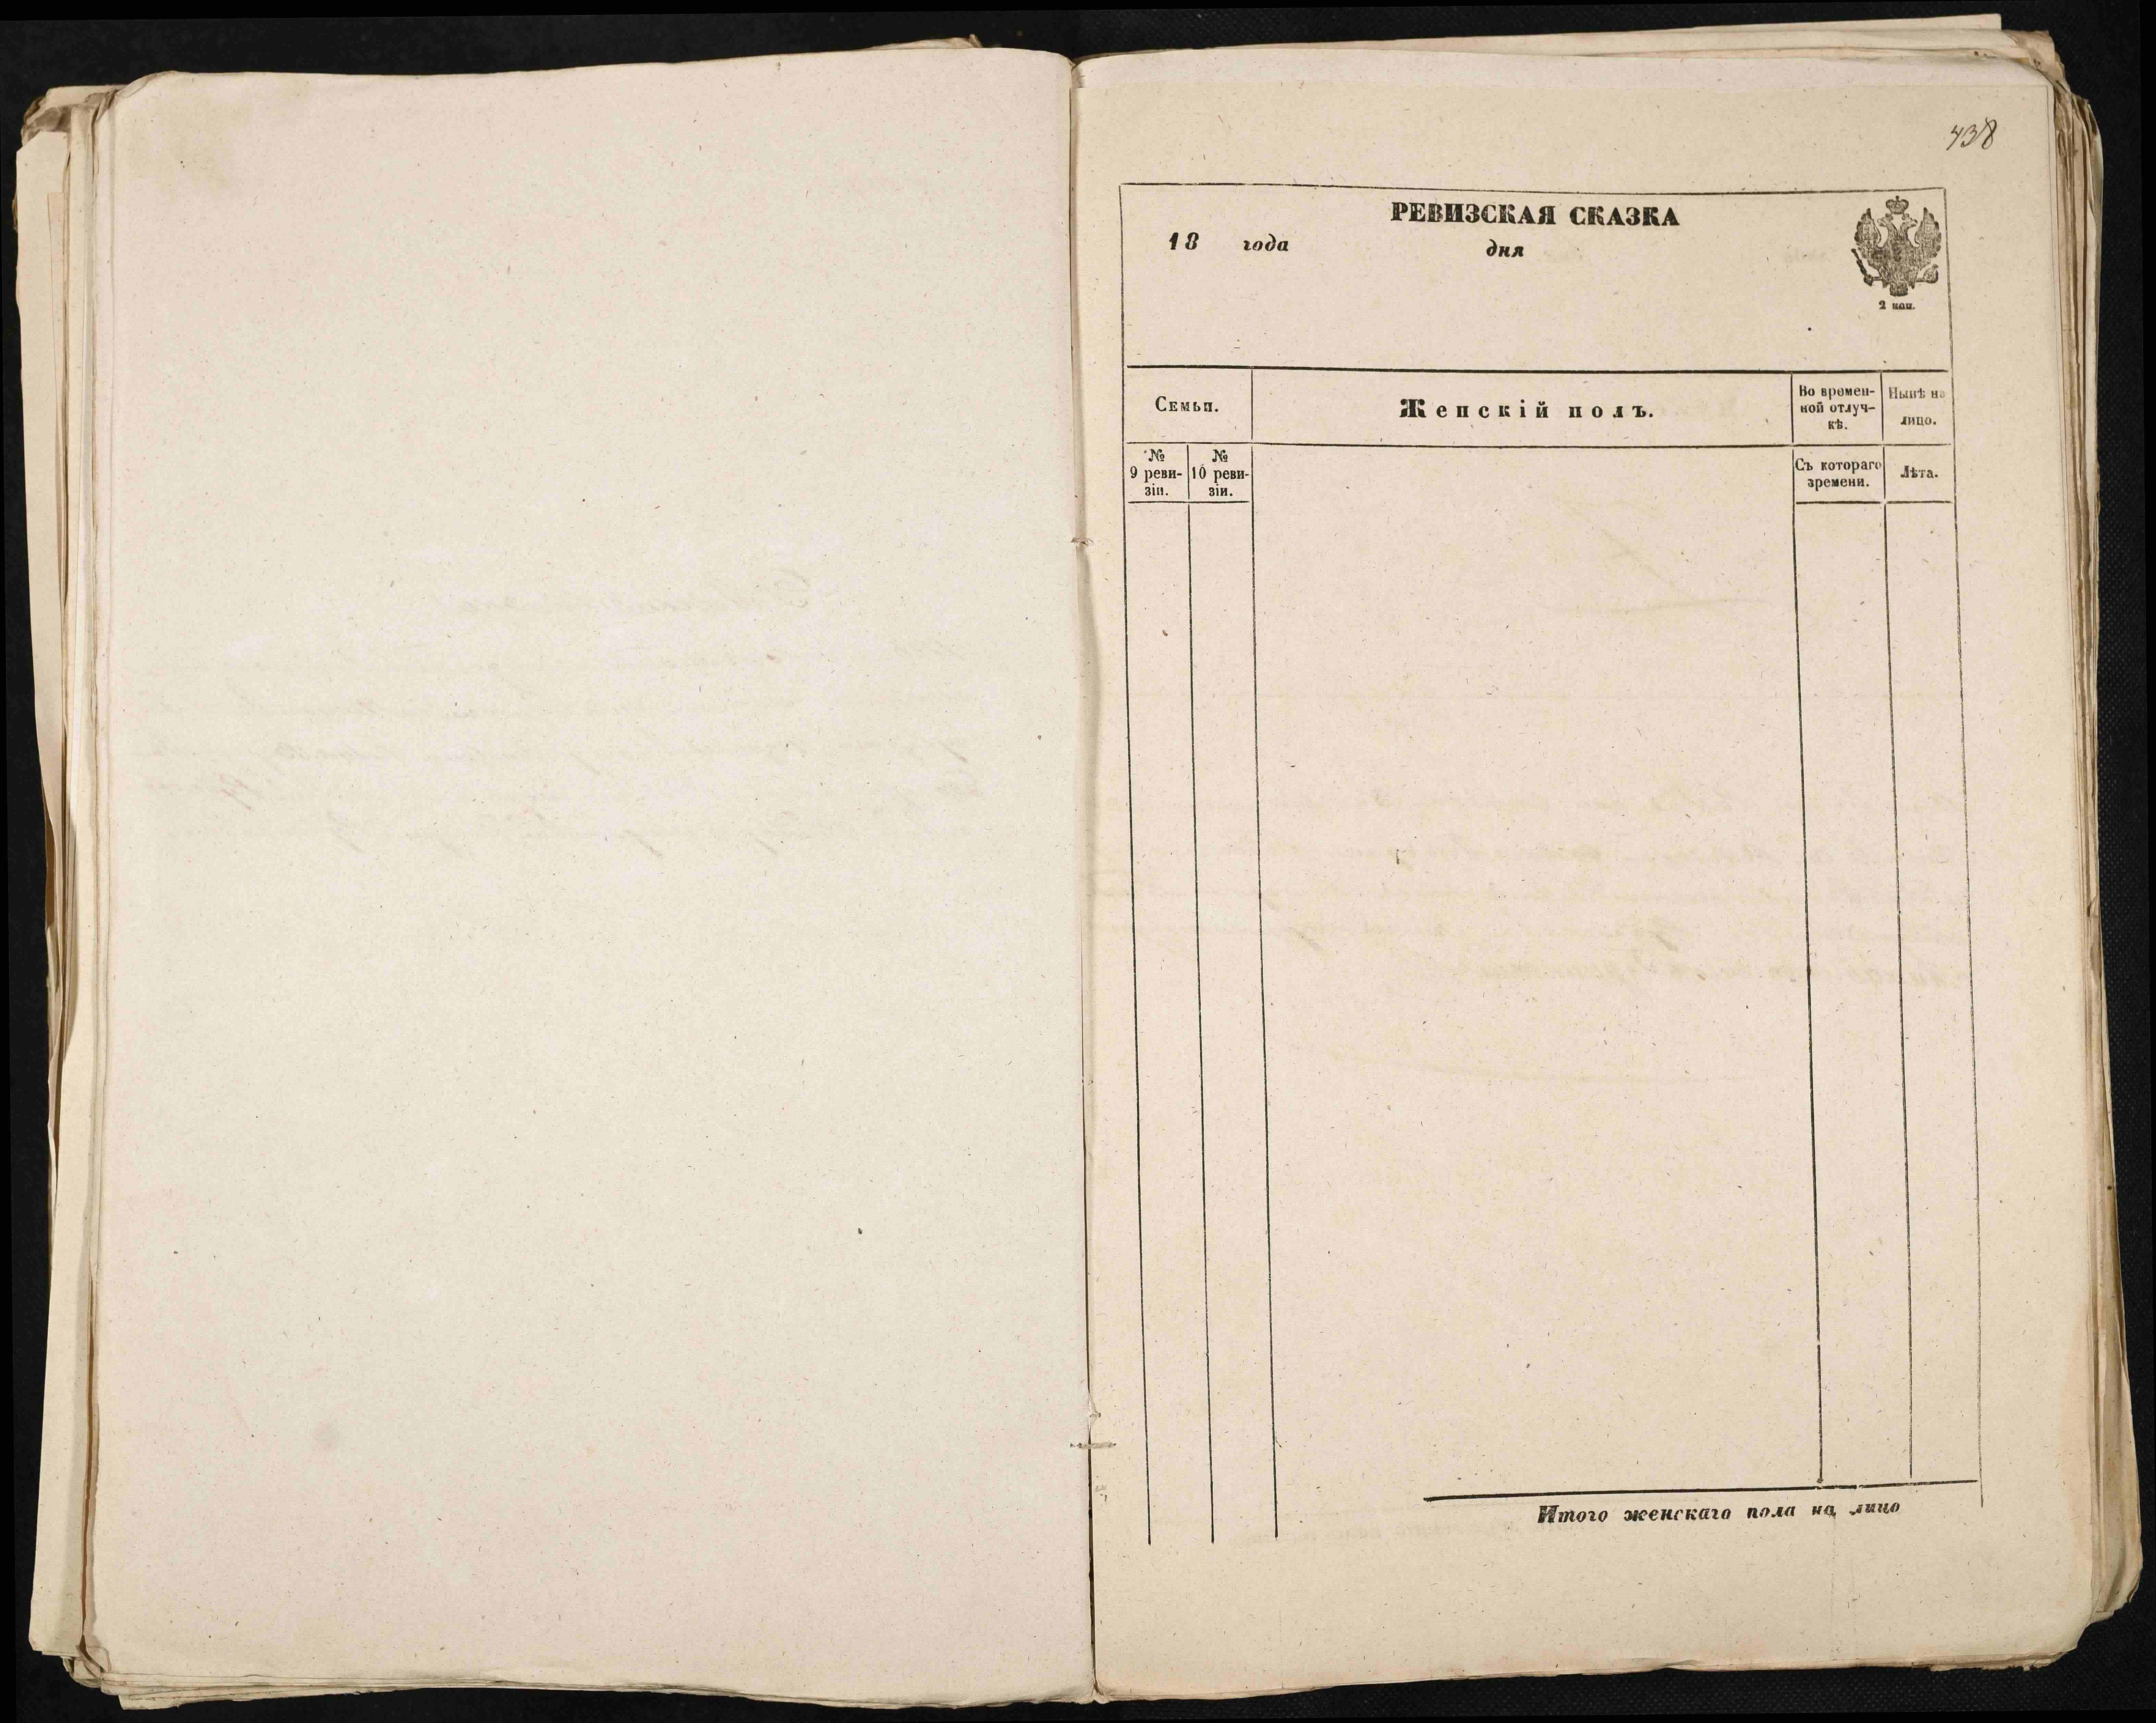 438
РЕВИЗСКАЯ СКАЗКА
18 года дня
2 коп.
Семьи.
Женскій полъ.
Во времен-
ной отлуч-
кѣ.
Нынѣ на
лицо.
№
9 реви-
зіи.
№
10 реви-
зіи.
Съ котораго
времени.
Лѣта.
Итого женскаго пола на лицо